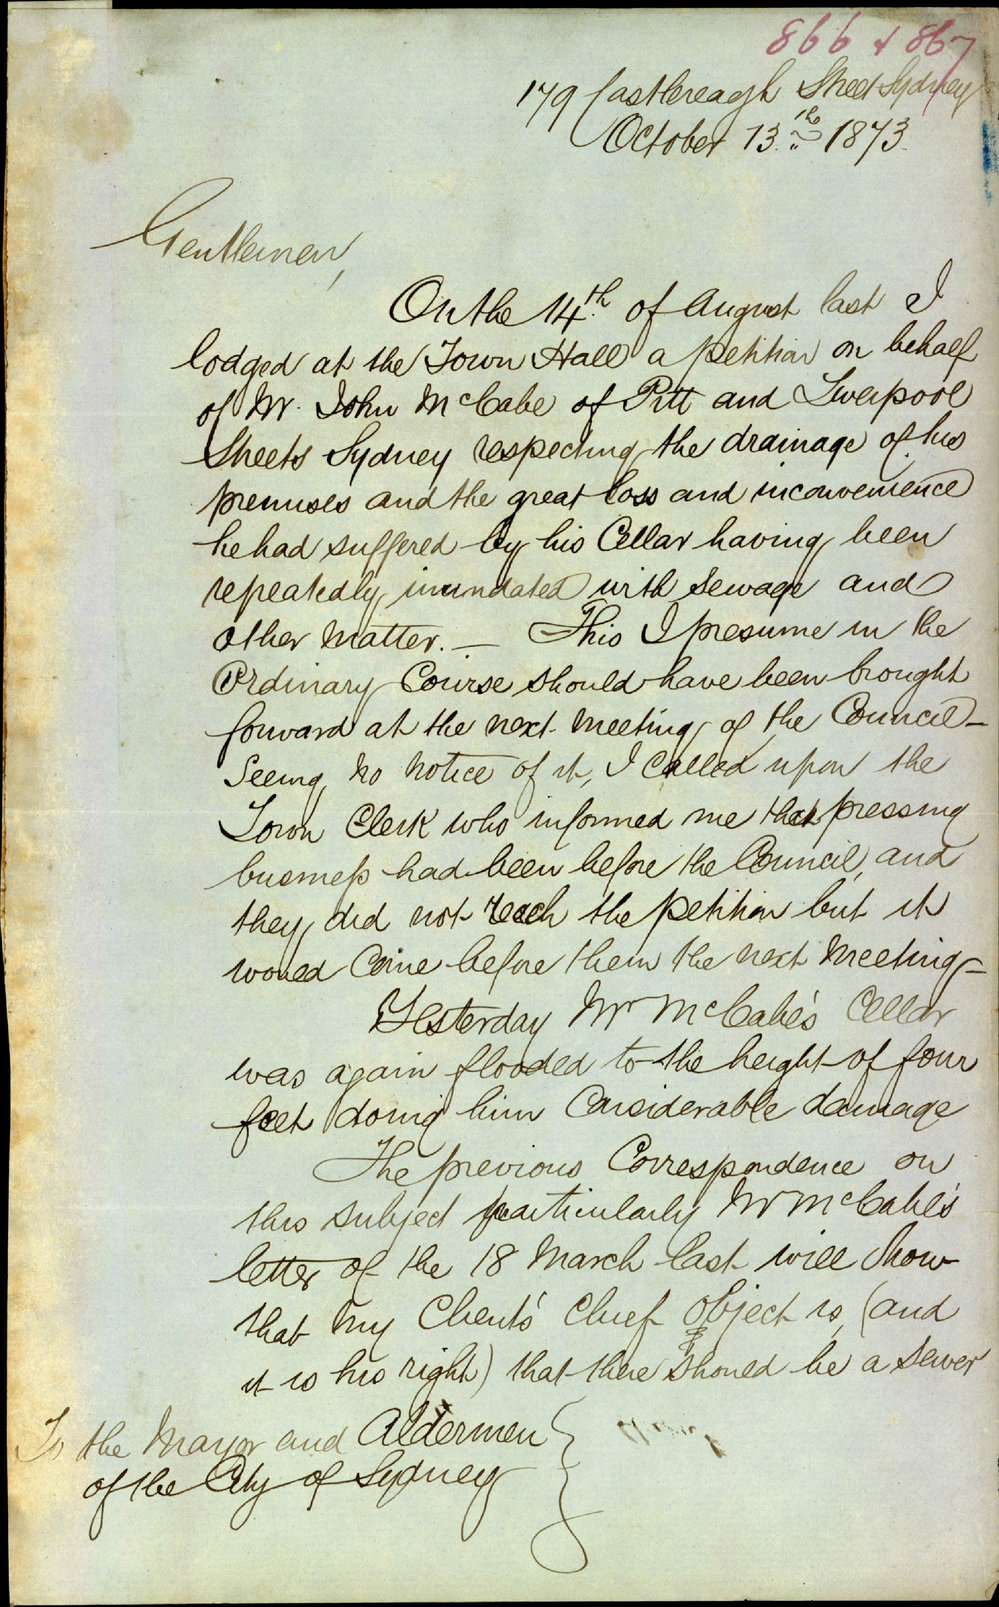 866 & 867
179 Castlereagh Street Sydney
October 13th 1873.
Gentlemen,
On the 14th of August last I
lodged at the Town Hall a petition on behalf
of Mr. John McCabe of Pitt and Liverpool
Streets Sydney respecting the drainage of his
premises and the great loss and inconvenience
he had suffered by his Cellar having been
repeatedly inundated with sewage and
other matter. — This I presume in the
Ordinary Course should have been brought
forward at the next meeting of the Council —
Seeing no notice of it, I called upon the
Town Clerk who informed me that pressing
business had been before the Council, and
they did not reach the petition but it
would Come before them the next Meeting —
Yesterday Mr McCabe's Cellar
was again flooded to the height of four
feet doing him Considerable damage
The previous Correspondence on
this subject particularly Mr McCabe's
letter of the 18 March last will show
that my Client's Chief Object is, (and
it is his right) that there should be a sewer
To the Mayor and Aldermen
of the City of Sydney